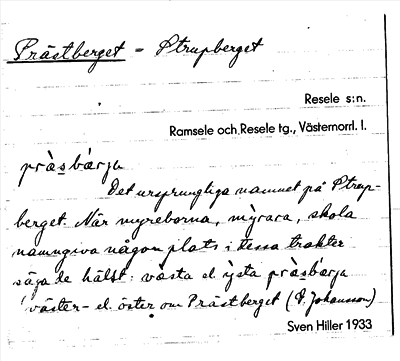 Prästberget = Strupberget
Resele s:n.
Ramsele och Resele tg., Västernorrl. l.
prà̀sbárja
Det ursprungliga namnet på Strup-
berget. När myreborna, mỳrara, skola
namngiva någon plats i dessa trakter
säga de hälst: västa el. ỳsta prà̀sbárja
'väster- el. öster om Prästberget (P. Johansson)
Sven Hiller 1933